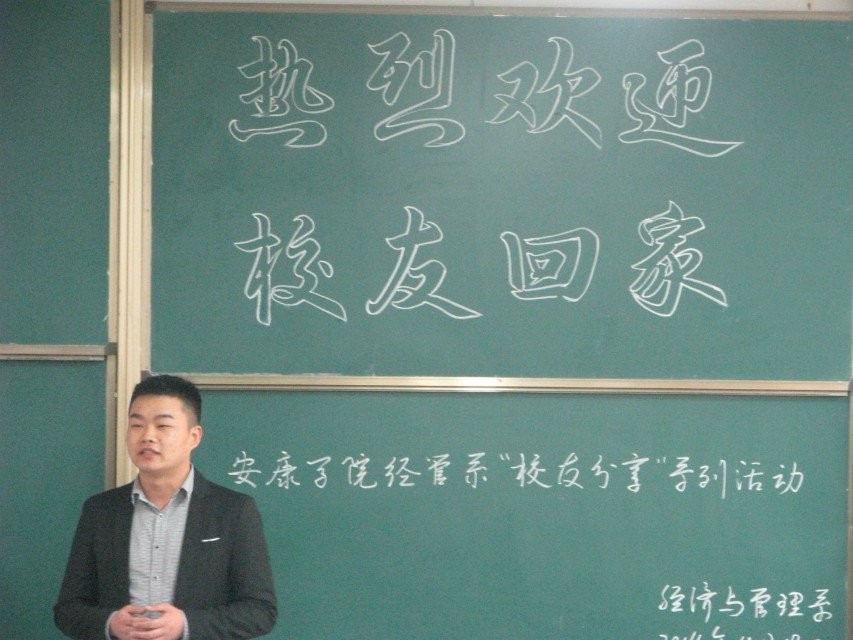 热烈欢迎
校友回家
安康学院经管系“校友分享”系列活动
经济与管理系